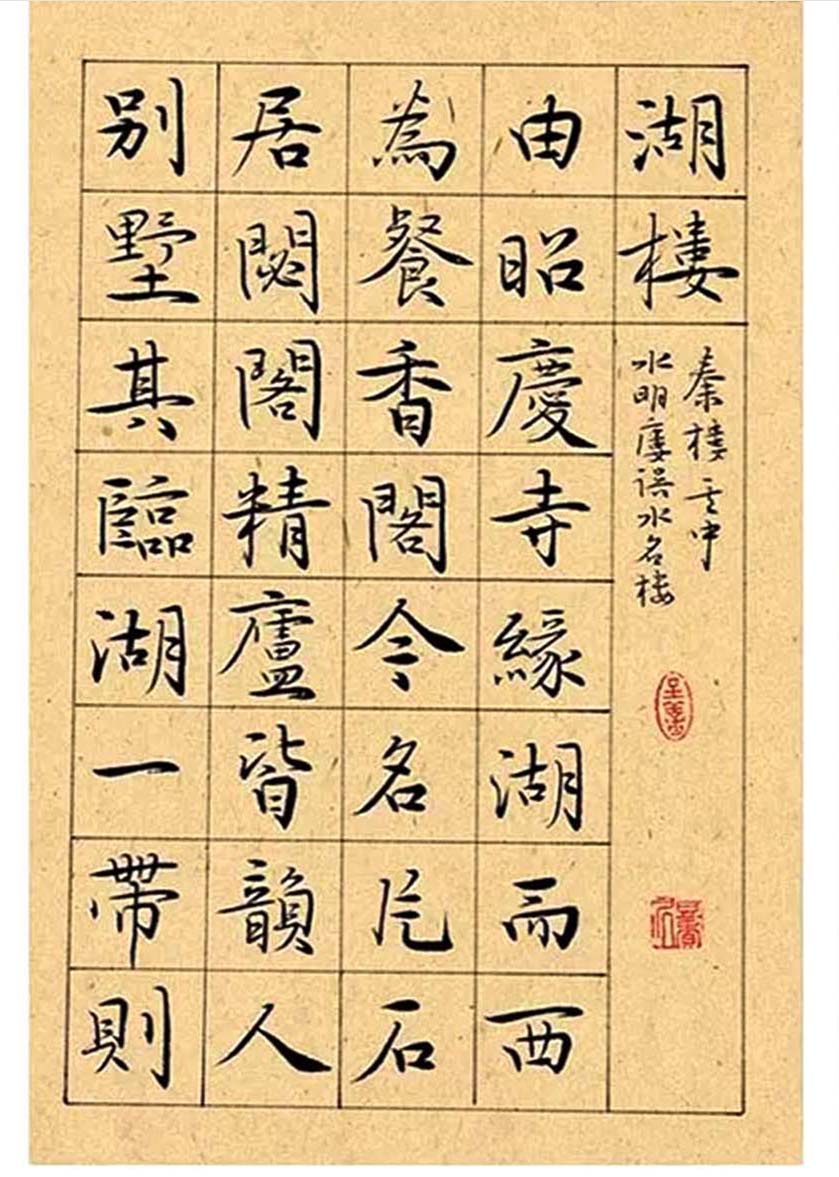 湖樓
秦楼其中
水明廔误水名楼
由昭慶寺緣湖而西
為餐香閣今名片石
居閟閣精廬皆韻人
别墅其臨湖一帶則